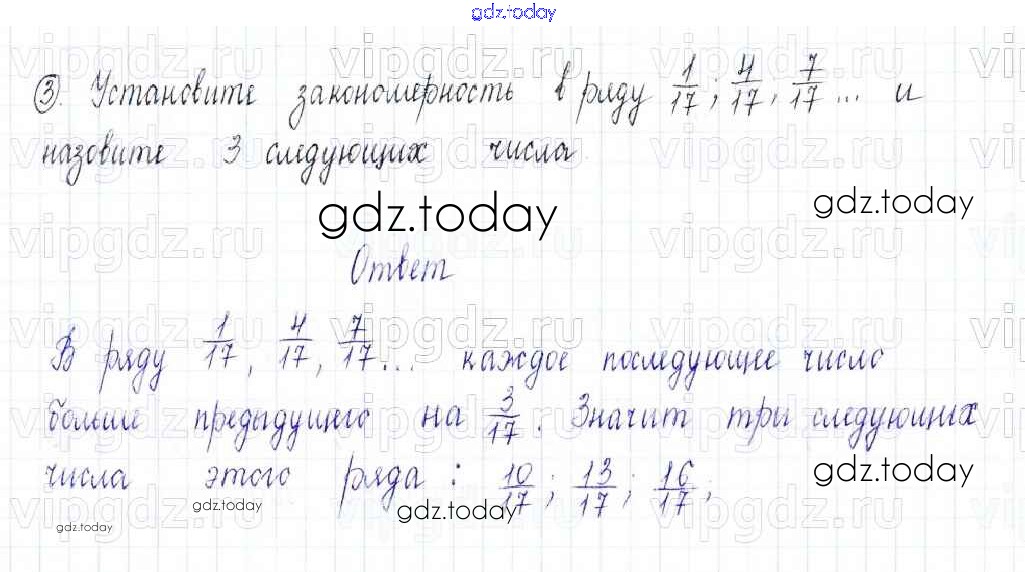 gdz.today
③. Установите закономерность в ряду 1/17; 4/17; 7/17... и
назовите 3 следующих числа.
gdz.today gdz.today
Ответ
В ряду 1/17, 4/17, 7/17... каждое последующее число
больше предыдущего на 3/17. Значит три следующих
числа этого ряда: 10/17; 13/17; 16/17;
gdz.today
gdz.today
gdz.today
gdz.today
vipgdz.ru